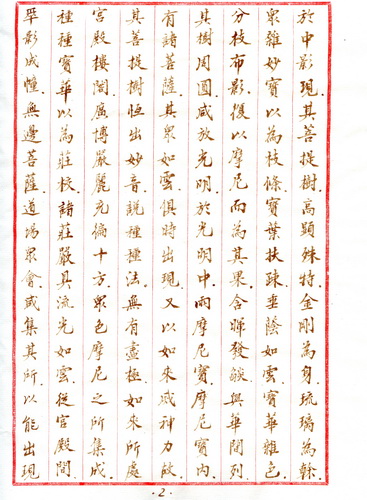 於中影現.其菩提樹.高顯殊特.金剛為身.琉璃為幹.
眾雜妙寶以為枝條.寶葉扶疎.垂蔭如雲.寶華雜色.
分枝布影.復以摩尼而為其果.含暉發燄.與華間列.
其樹周圓咸放光明.於光明中.雨摩尼寶.摩尼寶內.
有諸菩薩.其眾如雲.俱時出現.又以如來威神力故.
其菩提樹恆出妙音.說種種法.無有盡極.如來所處
宮殿樓閣.廣博嚴麗.充徧十方.眾色摩尼之所集成.
種種寶華以為莊校.諸莊嚴具.流光如雲.從宮殿間.
萃影成幢.無邊菩薩.道場眾會.咸集其所.以能出現
·2·